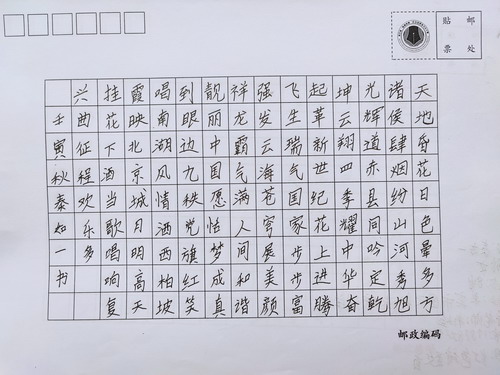 贴 邮
票 处
天地昏花日色晕多方
诸侯肆烟纷山河秀旭
光辉道赤县同吟定乾
坤云翔四季耀中华奋
起革新世纪花上进腾
飞生瑞气国家步步富
强发云海苍穹展美颜
祥龙霸气满人间和谐
靓丽中国愿恰梦成真
到眼边九秩党旗红笑
唱南湖风情洒西柏坡
霞映北京城月明高天
挂花下酒当歌唱响复
兴酉征程欢乐多
壬寅秋秦知一书
邮政编码